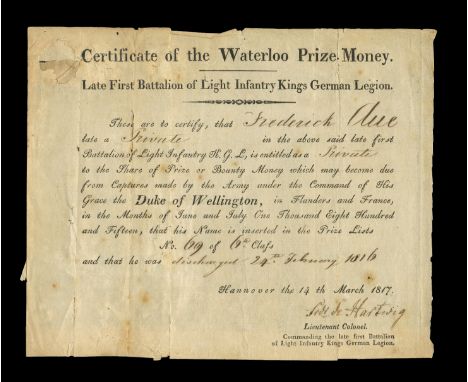 Certificate of the Waterloo Prize Money.
Late First Battalion of Light Infantry Kings German Legion.
These are to certify, that Frederick Aue
late a Private in the above said late first
Battalion of Light Infantry K. G. L, is entitled as a Private
to the Share of Prize or Bounty Money which may become due
from Captures made by the Army under the Command of His
Grace the Duke of Wellington, in Flanders and France,
in the Months of June and July One Thousand Eight Hundred
and Fifteen, that his Name is inserted in the Prize Lists
No. 69 of 6th Class
and that he was discharged 24th February 1816
Hannover the 14 th March 1817.
de Hartwig
Lieutenant Colonel.
Commanding the late first Battalion
of Light Infantry Kings German Legion.